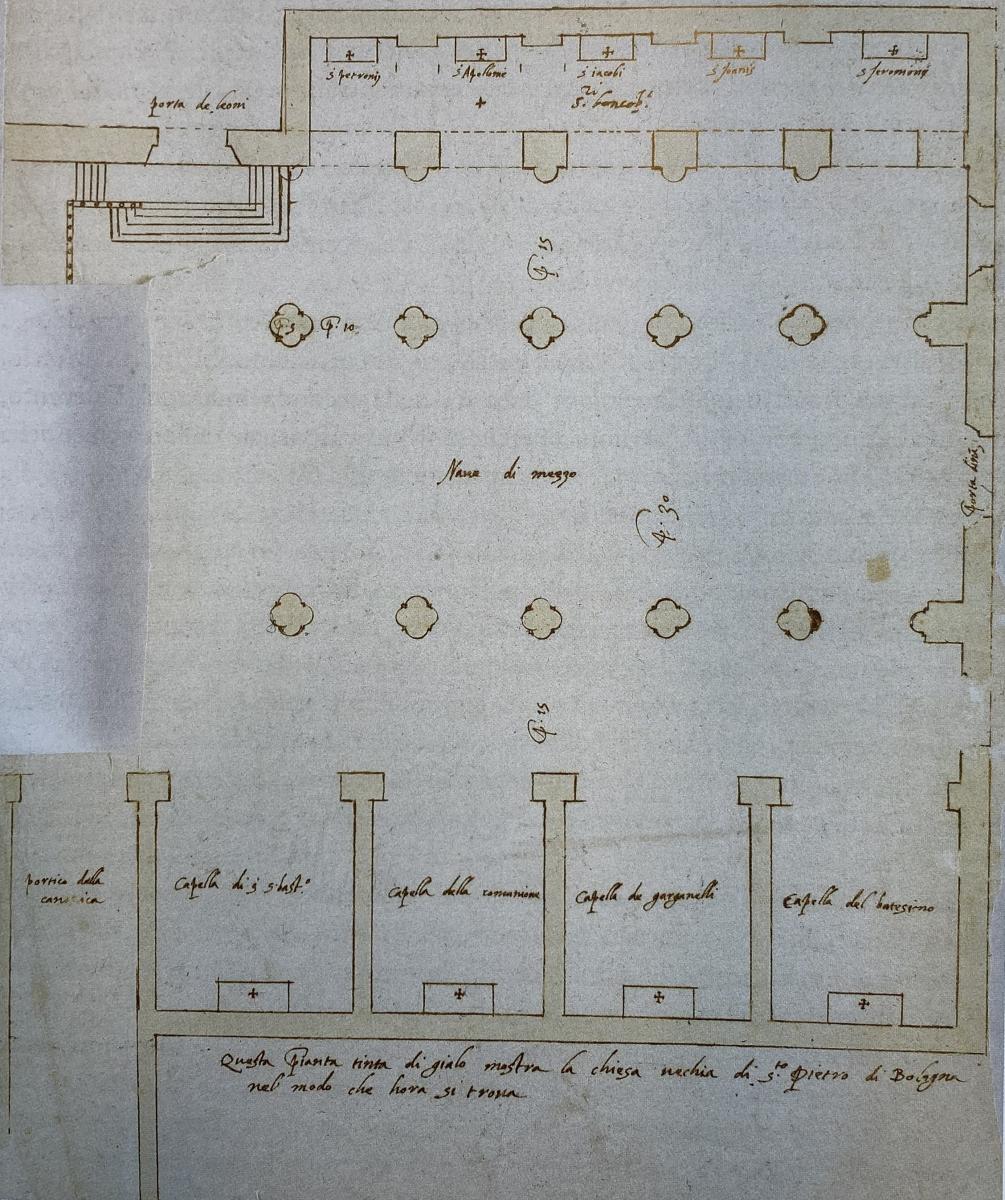 s petronij
s Apollonie
s iacobi
s Joanis
s Jeronimi
porta de leoni
p. 15
p. 5
p. 10
Nave di mezzo
p. 30
porta
p. 15
portico dalla
canonica
Capella di s sbast.o
Capella della comunione
Capella de garganelli
Capella del batesimo
Questa Pianta tinta di gialo mostra la chiesa vechia di s.to Pietro di Bologna
nel modo che hora si trova